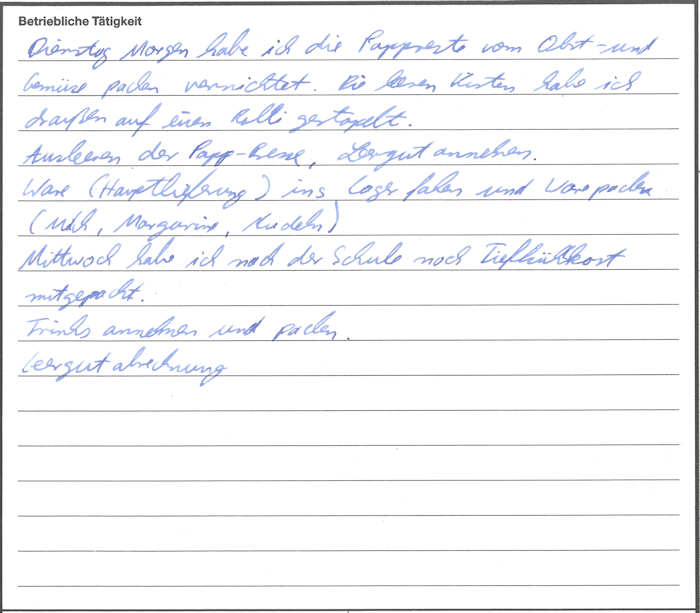 Betriebliche Tätigkeit
Dienstag Morgen habe ich die Pappreste vom Obst- und
Gemüse packen vernichtet. Die leeren Kisten habe ich
draußen auf einen Rolli gestapelt.
Ausleeren der Papp-Presse, Leergut annehmen.
Ware (Hauptlieferung) ins Lager fahren und Ware packen
(Milch, Margarine, Nudeln)
Mittwoch habe ich nach der Schule noch Tiefkühlkost
mitgepackt.
Trinks annehmen und packen.
Leergutabrechnung